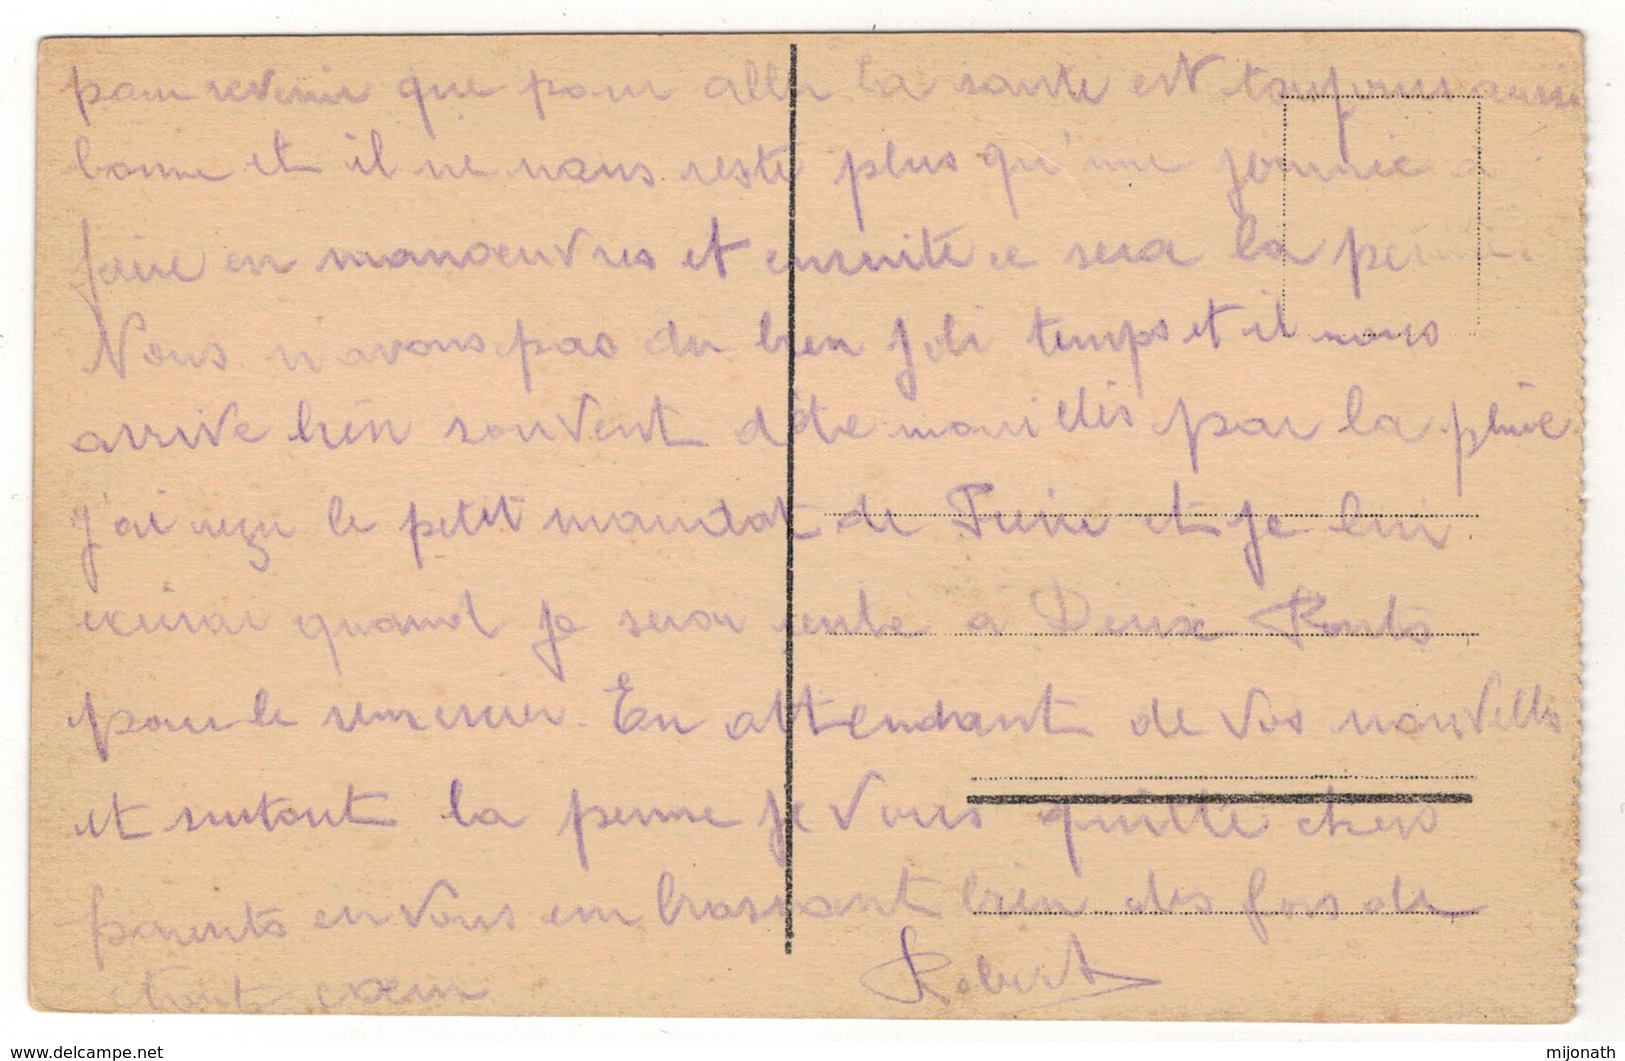 pour revenir que pour aller. La santé est toujours aussi
bonne et il ne nous reste plus qu'une journée à
faire en manoeuvres et ensuite ce sera la
Nous n'avons pas du bien joli temps et il nous
arrive bien souvent d'être mouillés par la pluie
j'ai reçu le petit mandat de et je lui
ecrirai quand je serai rentré à Deux Ponts
pour le remercier. En attendant de vos nouvelles
et surtout la je vous quitte chers
parents en vous embrassant bien des fois de
tout coeur
Robert
mijonath
www.delcampe.net